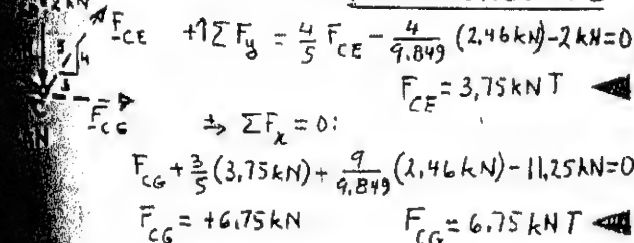 kN
F_CE +↑ΣF_y = 4/5 F_CE - 4/9.849 (2.46 kN) - 2 kN = 0
3
4
F_CE = 3.75 kN T ◀
F_CG
→+ ΣF_x = 0:
N
F_CG + 3/5 (3.75 kN) + 9/9.849 (2.46 kN) - 11.25 kN = 0
F_CG = +6.75 kN F_CG = 6.75 kN T ◀